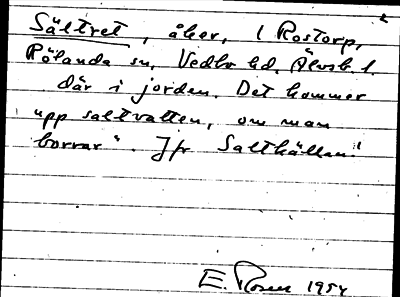 Sältret, åker, 1 Rostorp,
Rölanda sn, Vedbo hd, Älvsb. l.
där i jorden. Det kommer
upp saltvatten, om man
borrar". Jfr Saltkällan!
E. Rosen 1954